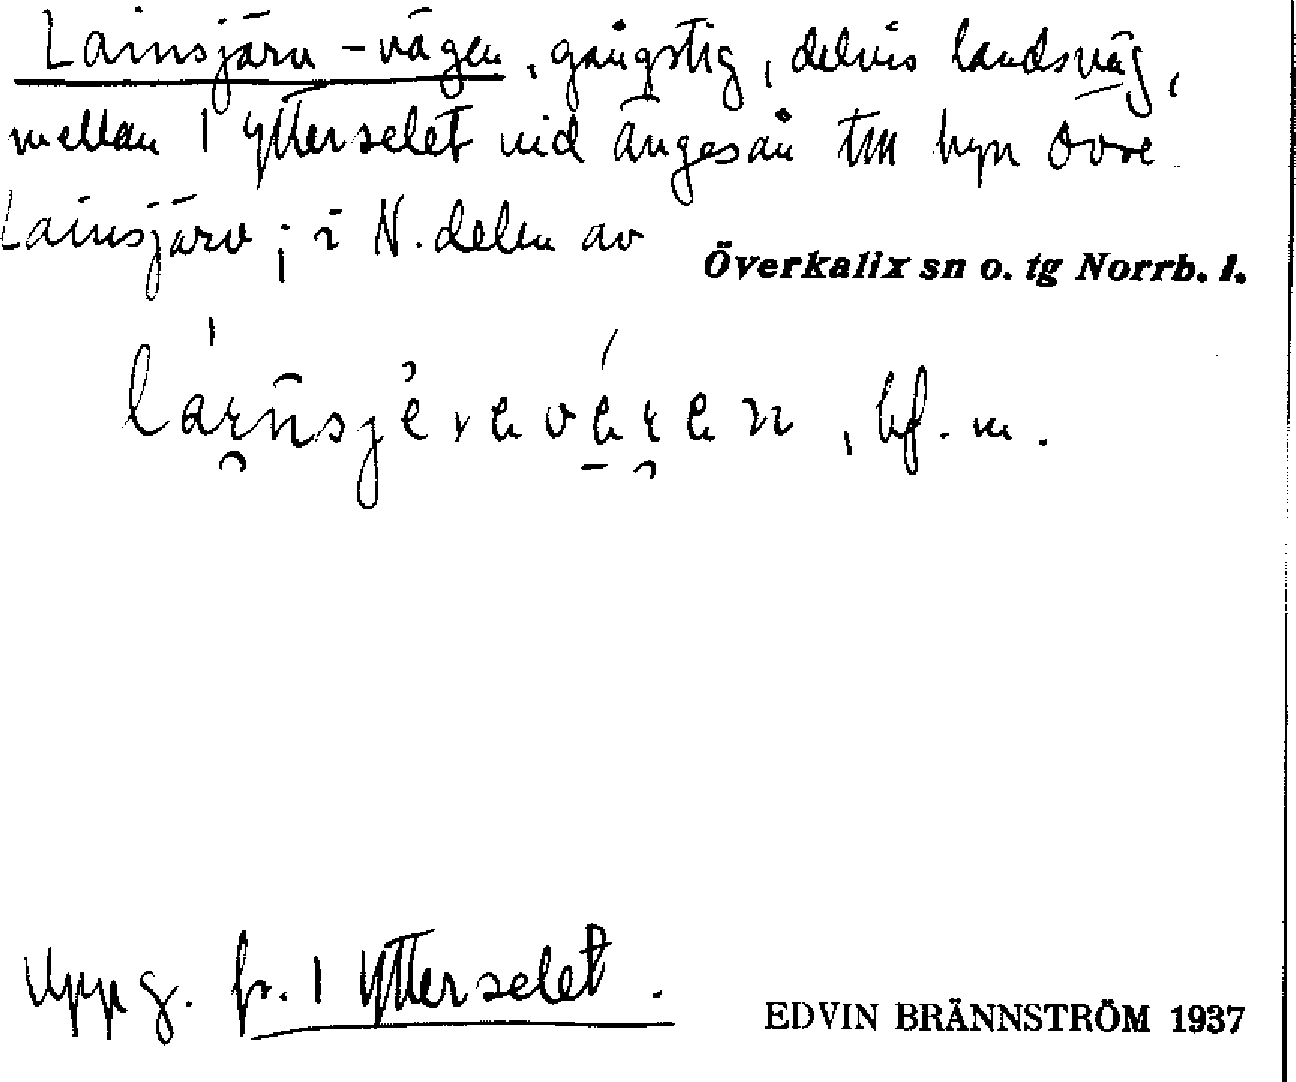 Lainsjärv-vägen, gångstig, delvis landsväg,
mellan 1 Ytterselet vid Ängesån till byn Övre
Lainsjärv; i N. delen av
Överkalix sn o. tg Norrb. l.
, bf. m.
Uppg. fr. 1 Ytterselet.
EDVIN BRÄNNSTRÖM 1937